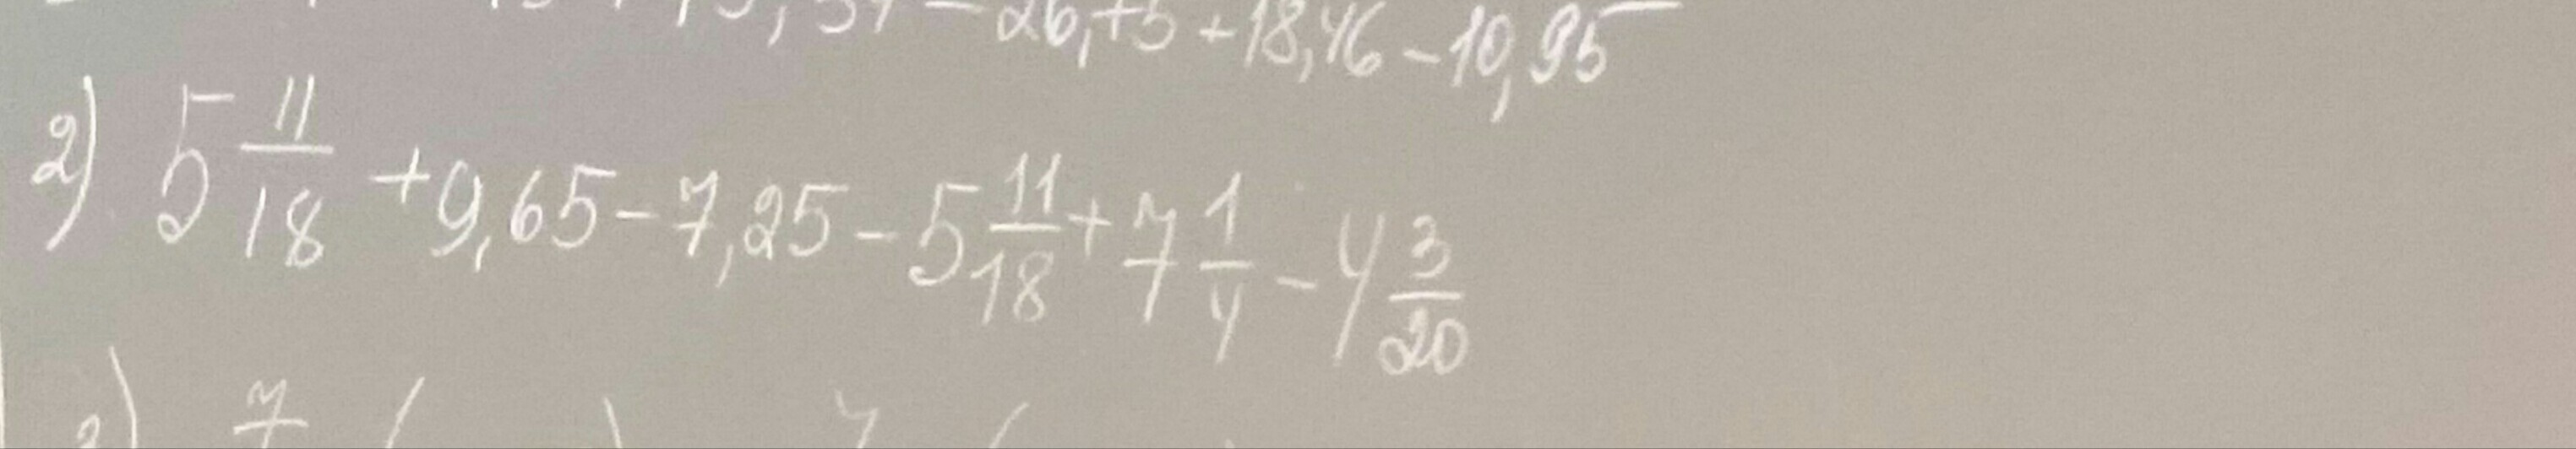 - 26,75 + 18,46 - 10,95
2) 5 11/18 + 9,65 - 7,25 - 5 11/18 + 7 1/4 - 4 3/20